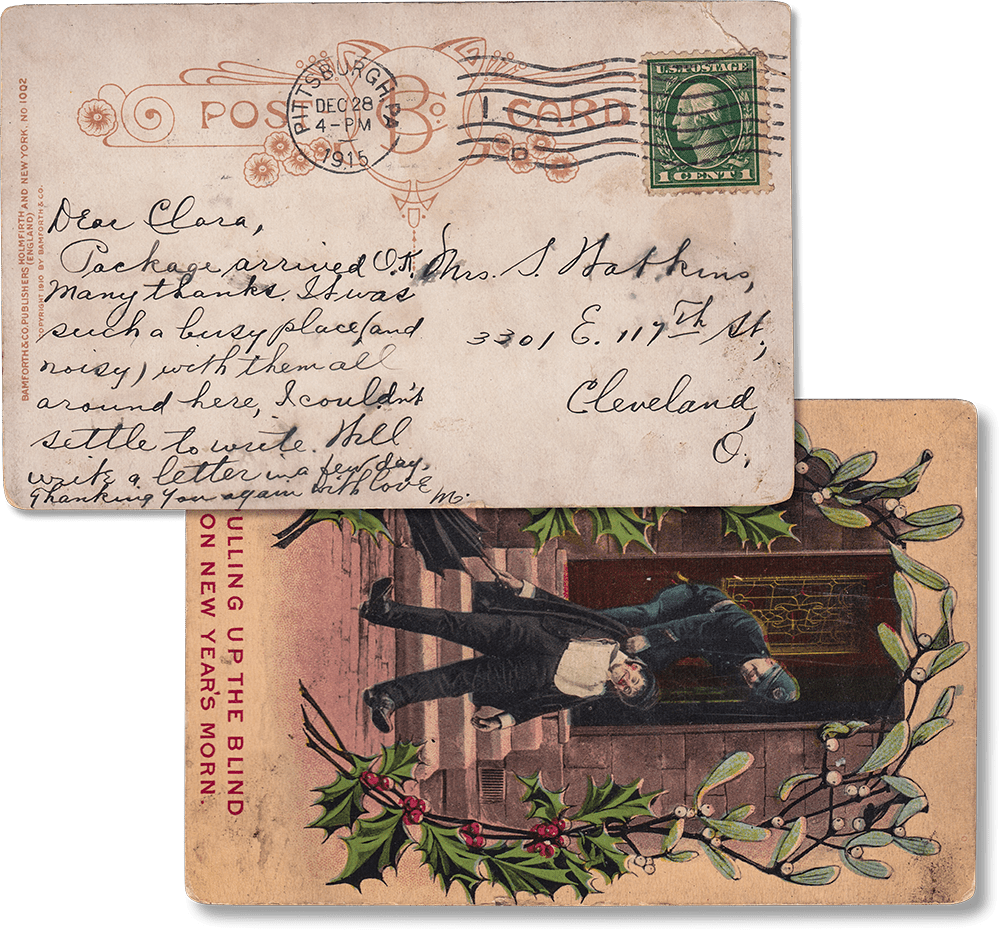 BAMFORTH & CO. PUBLISHERS HOLMFIRTH AND NEW YORK. NO. 1002
(ENGLAND)
COPYRIGHT 1910 BY BAMFORTH & CO.
POST CARD
B Co
PITTSBURGH, PA
DEC 28
4-PM
1915
1
D
U.S. POSTAGE
1 CENT 1
Dear Clara,
Package arrived O.K.
Many thanks. It was
such a busy place (and
noisy) with them all
around here, I couldn't
settle to write. Will
write a letter in a few days.
Thanking You again with love
M.
Mrs. S. Watkins,
3301 E. 117th St.,
Cleveland,
O.
ULLING UP THE BLIND
ON NEW YEAR'S MORN.